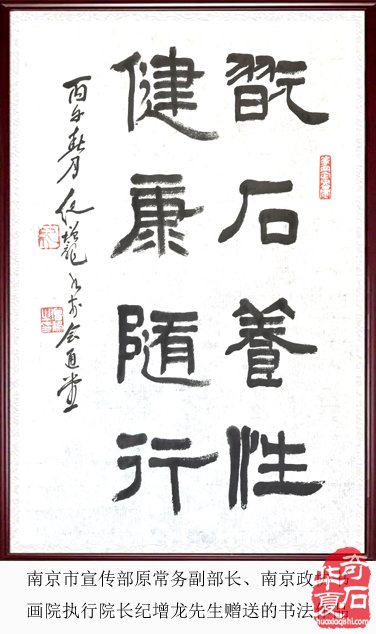 翫石養性
健康随行
春月纪增龍书于会通堂
南京市宣传部原常务副部长、南京政
画院执行院长纪增龙先生赠送的书法
华夏奇石
huaxiaqishi.com